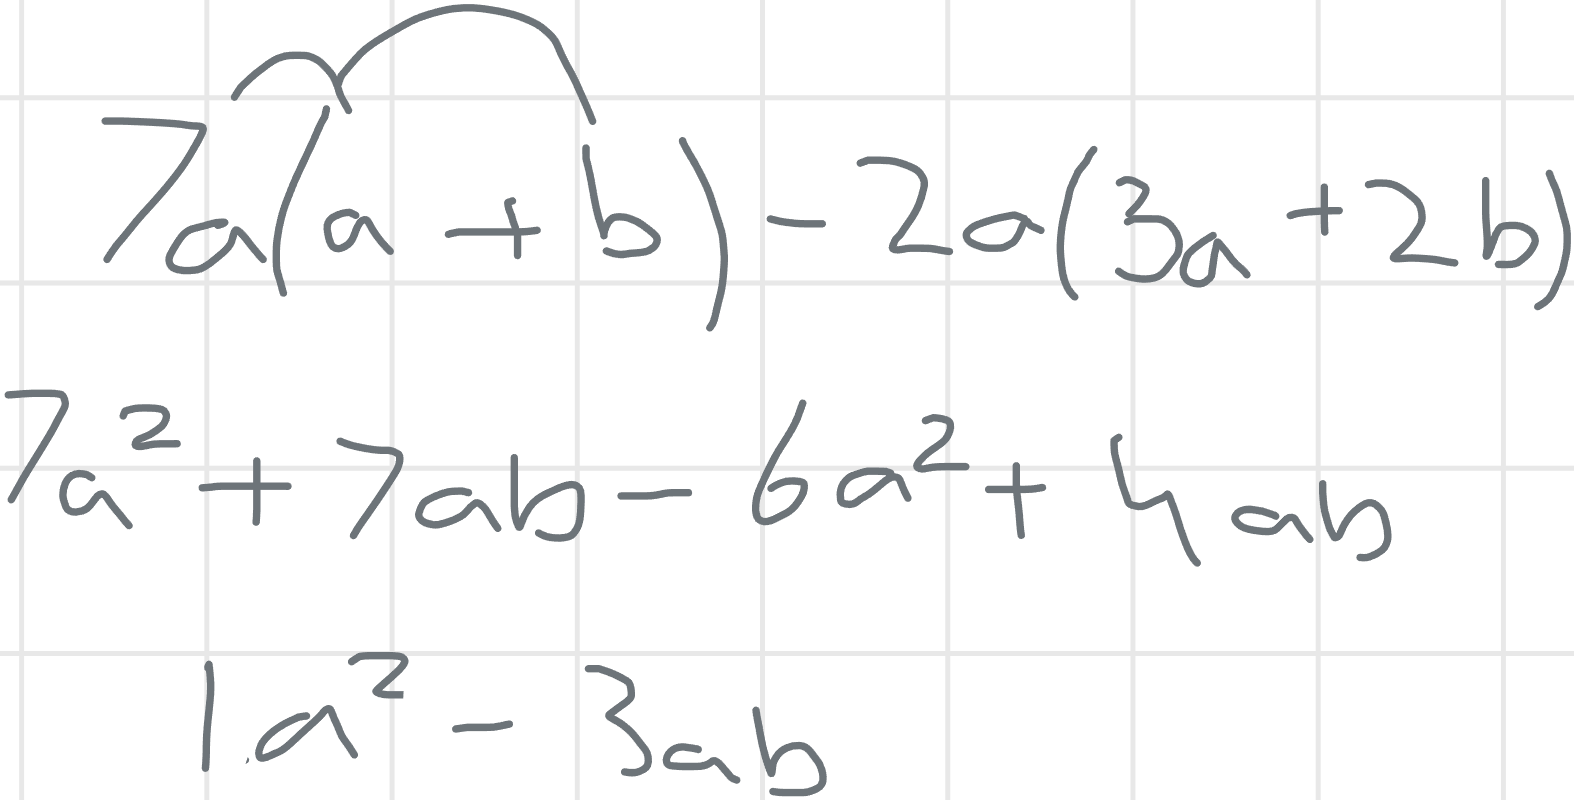 7a(a + b) - 2a(3a + 2b)
7a² + 7ab - 6a² + 4ab
1a² - 3ab